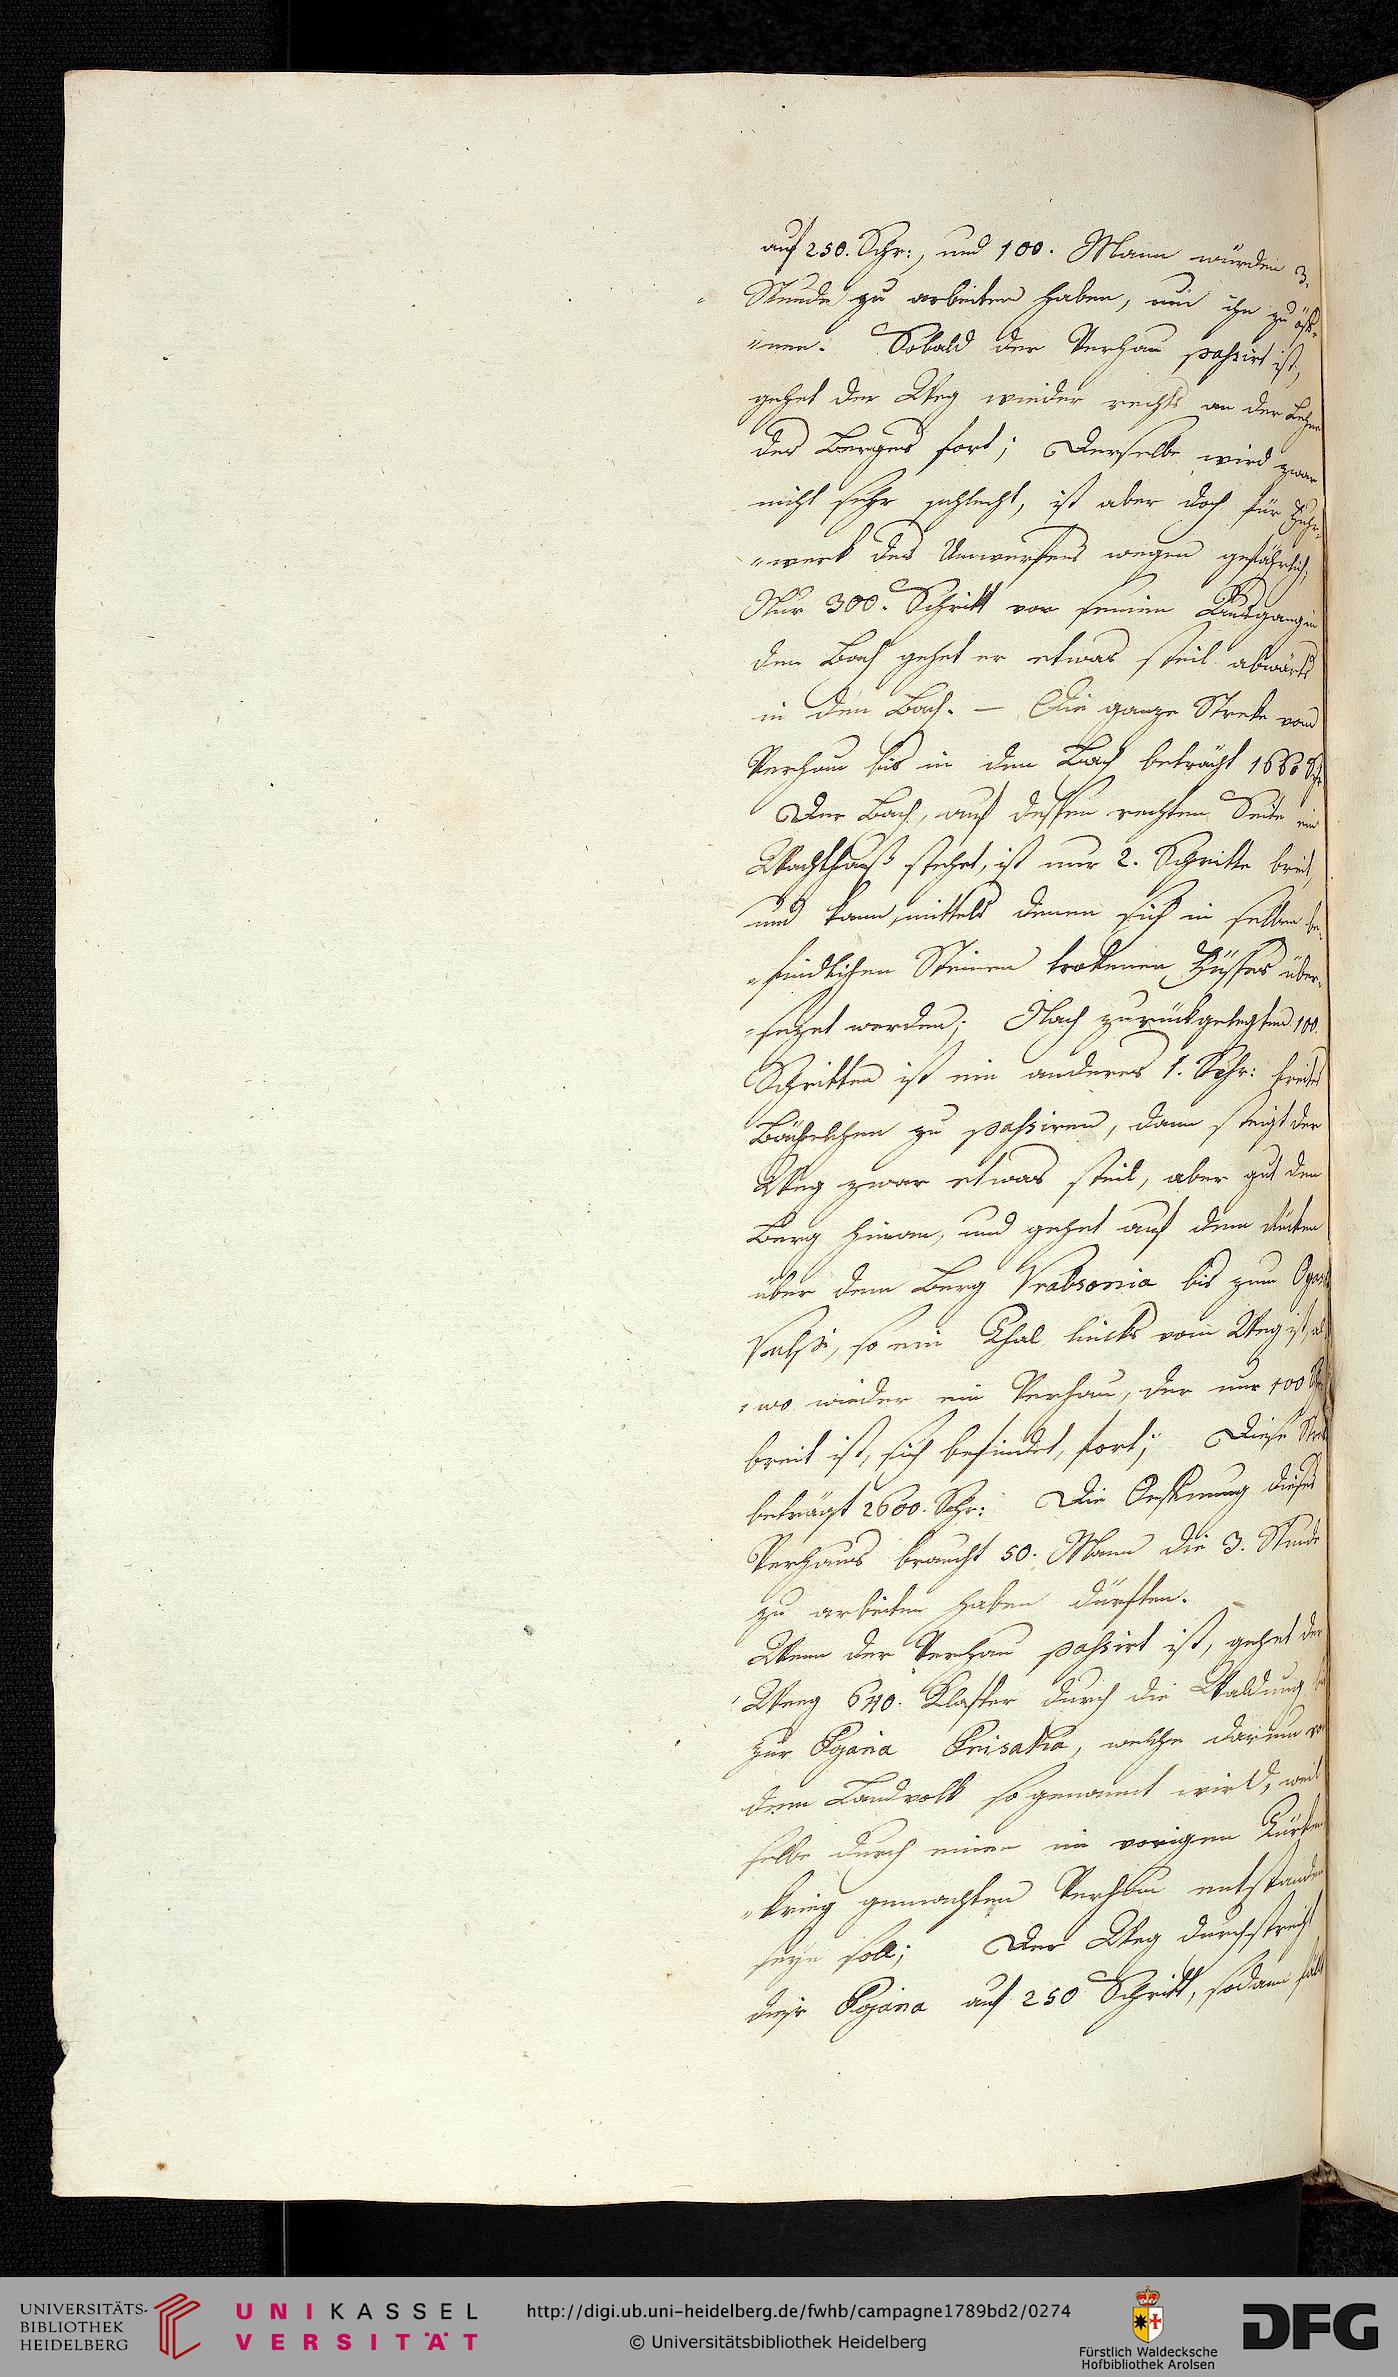 auf 250. Schr:, und 100. Mann würden 3.
Stunde zu arbeiten haben, um ihn zu öff-
"nen. Sobald der Verhau passirt ist,
gehet der Weg wieder rechts an der Lehne
des Berges fort; Derselbe wird zwar
nicht sehr schlecht, ist aber doch für Fuhr-
"werk des Umwerfens wegen gefährlich;
Nur 300. Schritt vor seinem Ausgang in
den Bach gehet er etwas steil abwärts
in den Bach. — Die ganze Streke vom
Verhau bis in den Bach beträgt 1660 Schr
Der Bach, auf dessen rechten Seite ein
Wachthauß stehet, ist nur 2. Schritte breit,
und kann, mittels denen sich in selben be-
"findlichen Steinen trokenen Fusses über-
"sezet werden; Nach zurückgelegten 100.
Schritten ist ein anderes 1. Schr: breites
Bächelchen zu passiren, dann steigt der
Weg zwar etwas steil, aber gut den
Berg hinan, und gehet auf dem Rücken
über dem Berg Vrabsonia bis zum
so ein Thal lincks vom Weg ist, al-
"wo wieder ein Verhau, der nur 100 Schr
breit ist, sich befindet, fort; Diese Streke
beträgt 2600. Schr: Die Oeffnung dieses
Verhaus braucht 50. Mann die 3. Stunde
zu arbeiten haben dürften.
Wenn der Verhau passirt ist, gehet der
Weeg 640. Klafter durch die Waldung bis
zur Pojana Prisaka, welche darum von
dem Landvolk so genannt wird, weil
selbe durch einen im vorigen Türken
"krieg gemachten Verhau entstanden
seyn soll; Der Weg durchstreicht
diese Pojana auf 250 Schritt, sodann fält
UNIVERSITÄTS-
BIBLIOTHEK
HEIDELBERG
UNIKASSEL
VERSITÄT
http://digi.ub.uni-heidelberg.de/fwhb/campagne1789bd2/0274
© Universitätsbibliothek Heidelberg
Fürstlich Waldecksche
Hofbibliothek Arolsen
DFG